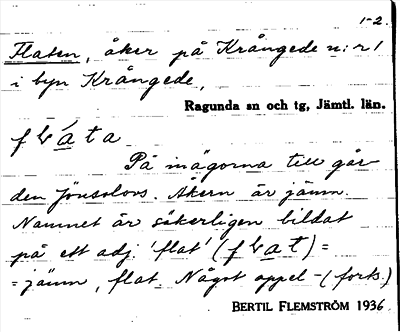 1-2.
Flaten, åker på Krångede n:r 1
i byn Krångede,
Ragunda sn och tg, Jämtl. län.
På mågorna till går-
den Jönsolovs. Åkern är jämn.
Namnet är säkerligen bildat
på ett adj. 'flat' (flat) =
= jämn, flat. Något appel- (forts.)
BERTIL FLEMSTRÖM 1936